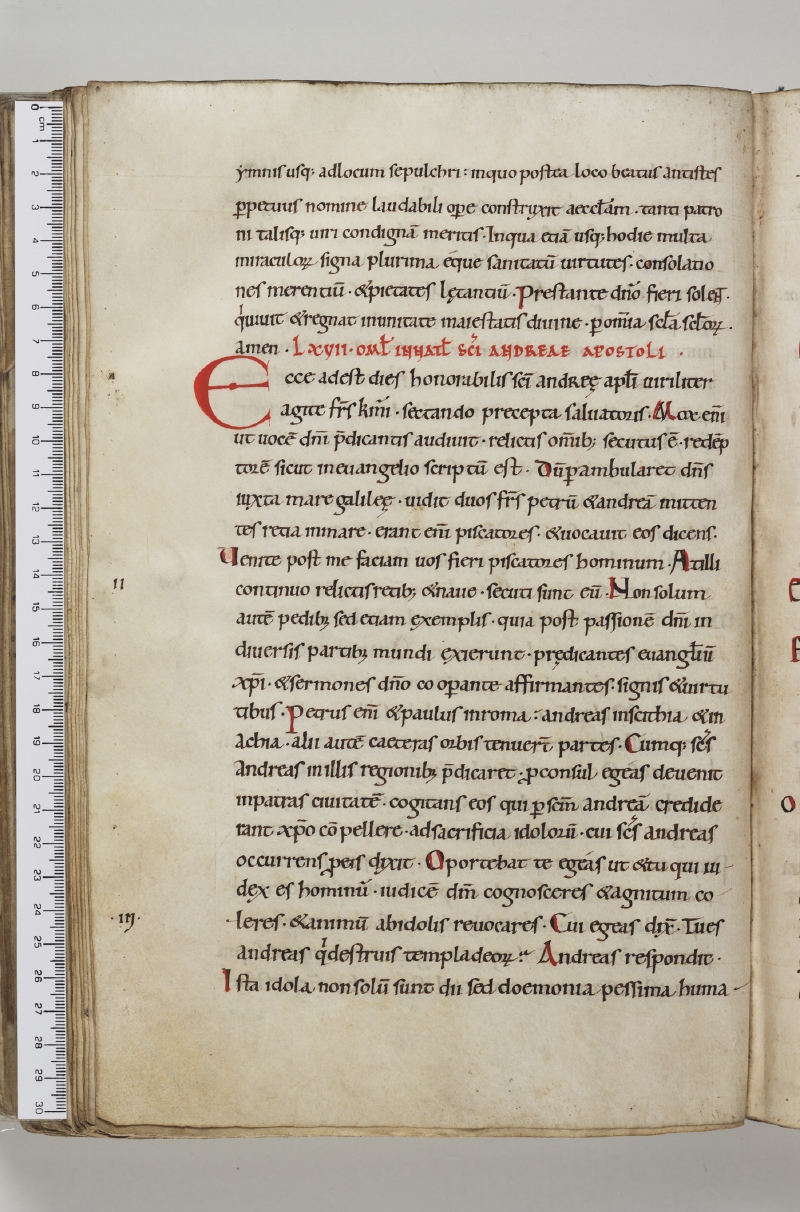 ẏmnis usq; ad locum sepulchri : in quo postea loco beatus antistes
ꝑpetuus nomine laudabili oꝑe construxit aeccl̄am · tanti patro
ni talisq; uiri condignā meritis · In qua etiā usq; hodie multa
miraculoꝝ signa plurima, eque sanitatū uirtutes · consolatio
nes merentiū · & pietates lętantiū · Prestante dn̄o fieri solet ·
q̇ uiuit & regnat in unitate maiestatis diuine · ꝑ om̄ia scl̄a scl̄oꝝ .
amen · LXVII · OML̄ IN NAT̄L SC̄I ANDREAE APOSTOLI ·
Ecce adest dies honorabilis sc̄i andreę apl̄i uiriliter
agite fr̄s km̄i · sectando precepta saluatoris · Mox em̄
ut uocē dn̄i p̄dicantis audiuit · relictis om̄ib; secutus ē · redēp
torē sicut in euangelio scriptū est · Dū ꝑambularet dn̄s
iuxta mare galileę · uidit duos fr̄s petrū & andreā mitten
tes retia in mare · erant em̄ piscatores · & uocauit eos dicens ·
Uenite post me faciam uos fieri piscatores hominum · At illi
II continuo relictis retib; & naue · secuti sunt eū · Non solum
autē pedib; sed etiam exemplis · quia post passionē dn̄i in
diuersis partib; mundi exierunt · prędicantes euangl̄iū
xp̄i · & sermones dn̄o cooꝑante affirmantes · signis & uirtu
tibus · Petrus em̄ & paulus in roma : andreas in scithia & in
achia · alii autē caeteras orbis tenuer̄t partes · Cumq; sc̄s
Andreas in illis regionib; p̄dicaret · ꝓconsul egeas deuenit
in patras ciuitatē · cogitans eos qui ꝑ sc̄m andreā credide
rant xp̄o cōpellere · ad sacrificia idolorū · cui sc̄s andreas
occurrens ꝓ eis dixit · Oportebat te egeas ut & tu qui iu
dex es hominū · iudicē dn̄m cognosceres & agnitum co
· III · leres · & animū ab idolis reuocares · Cui egeas dix̄ · Tu es
andreas q̇ destruis templa deoꝝ :· Andreas respondit ·
Ista idola non solū sunt dii sed doemonia pessima huma